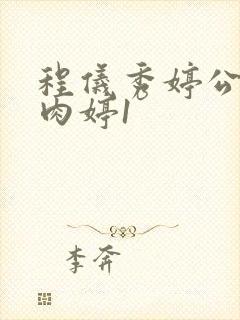 程仪秀婷公
肉婷1
李奔